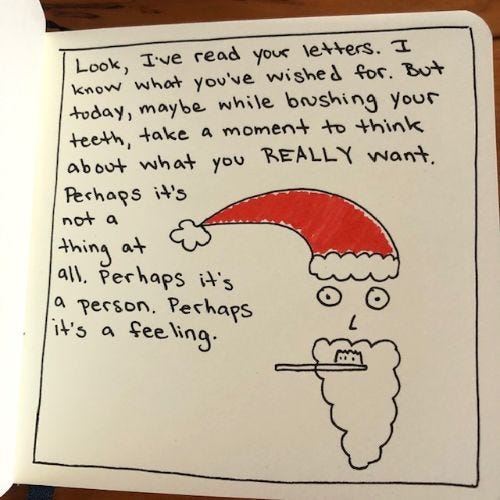 Look, I've read your letters. I
know what you've wished for. But
today, maybe while brushing your
teeth, take a moment to think
about what you REALLY want.
Perhaps it's
not a
thing at
all. Perhaps it's
a person. Perhaps
it's a feeling.